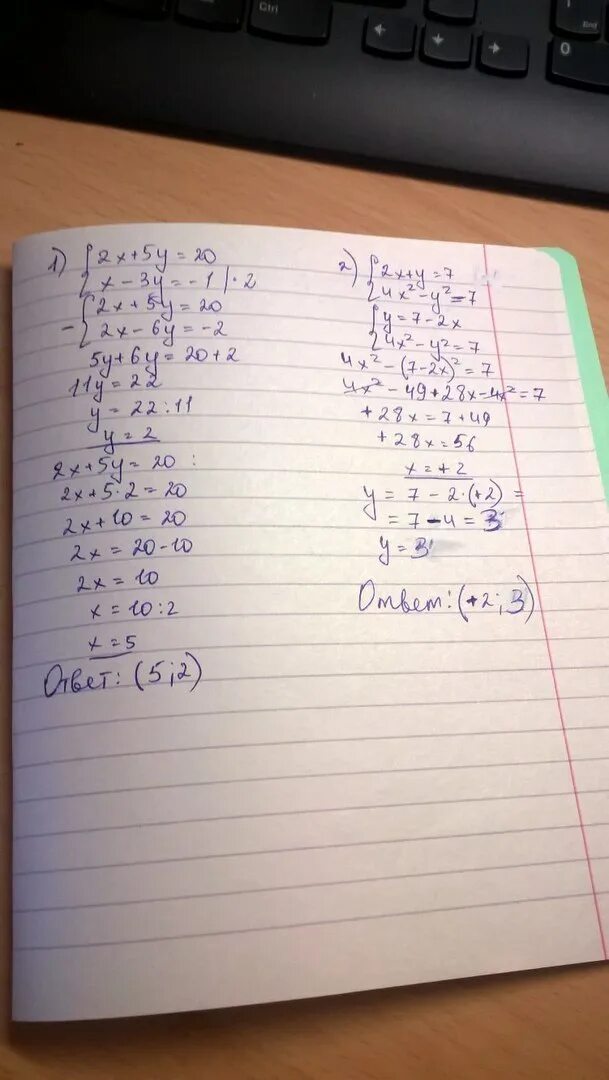 Ctrl
End
0
1) { 2x+5y=20
x-3y=-1 |·2
- { 2x+5y=20
2x-6y=-2
5y+6y=20+2
11y=22
y=22:11
y=2
2x+5y=20 :
2x+5·2=20
2x+10=20
2x=20-10
2x=10
x=10:2
x=5
Ответ: (5;2)
2) { 2x+y=7
4x²-y²=7
{ y=7-2x
4x²-y²=7
4x²-(7-2x)²=7
4x²-49+28x-4x²=7
+28x=7+49
+28x=56
x=+2
y=7-2·(+2)=
=7-4=3
y=3
Ответ: (+2;3)